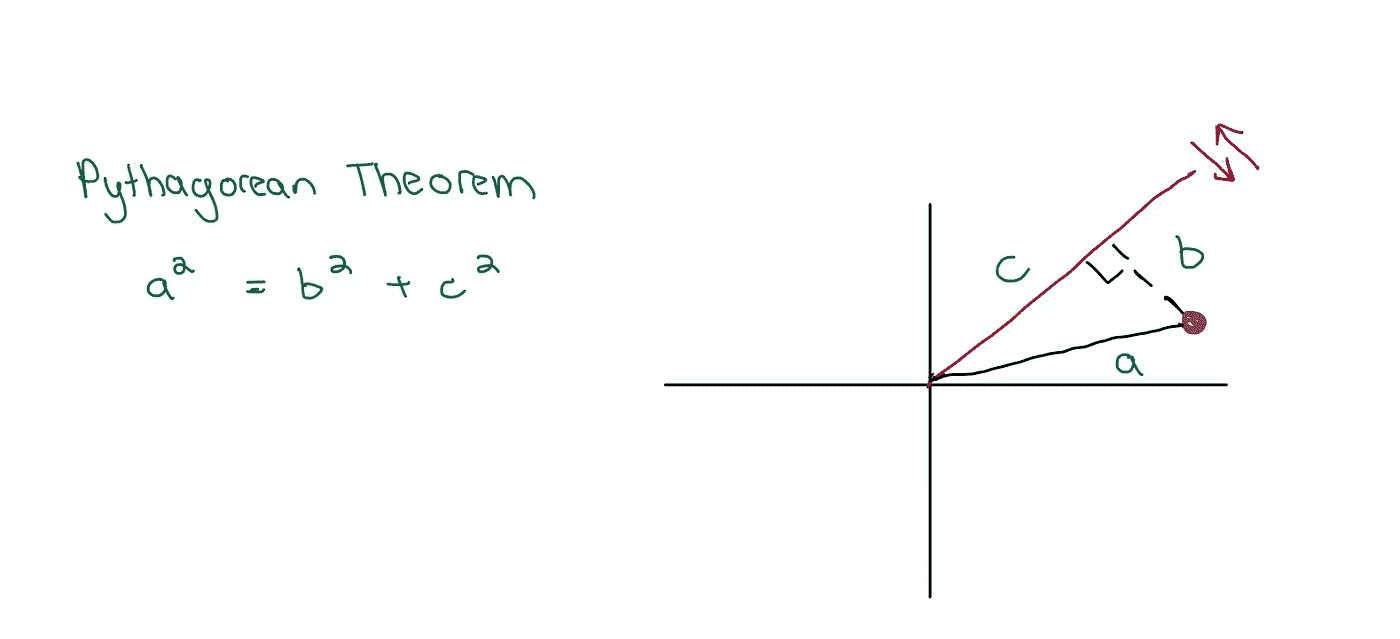 Pythagorean Theorem
a² = b² + c²
c
b
a